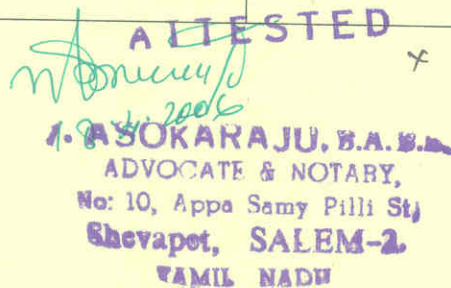 ATTESTED
2006
ASOKARAJU. B.A. B.L.
ADVOCATE & NOTARY,
No: 10, Appa Samy Pilli St,
Shevapet, SALEM-2.
TAMIL NADU